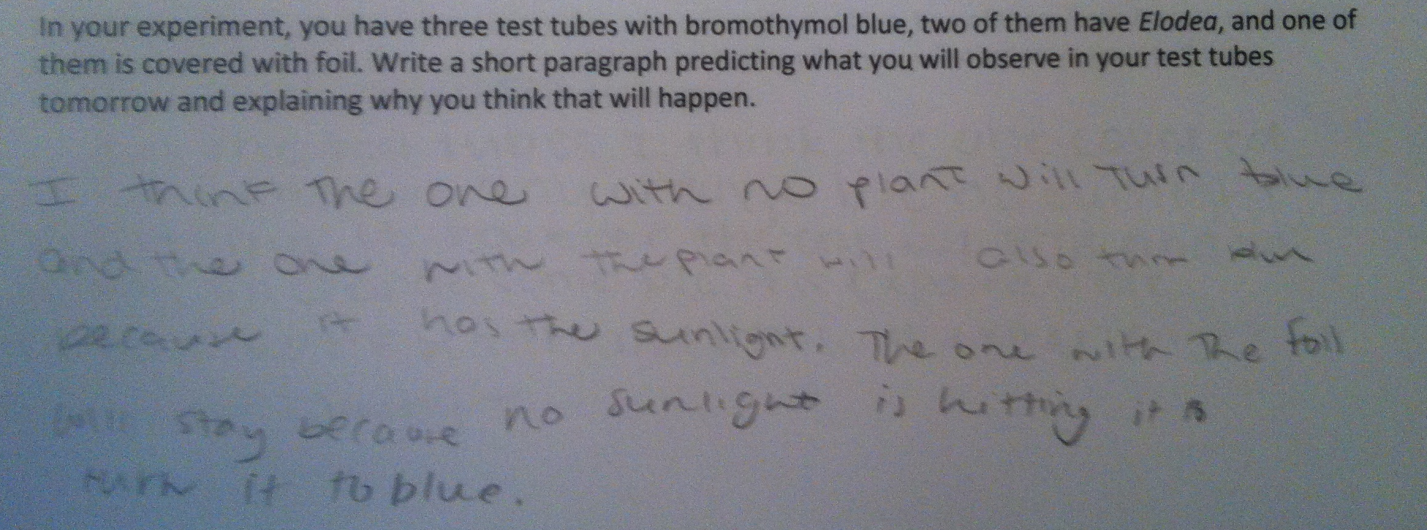 In your experiment, you have three test tubes with bromothymol blue, two of them have Elodea, and one of
them is covered with foil. Write a short paragraph predicting what you will observe in your test tubes
tomorrow and explaining why you think that will happen.
I think the one with no plant will turn blue
and the one with the plant will also turn
because it has the sunlight. The one with the foil
will stay because no sunlight is hitting it
turn it to blue.